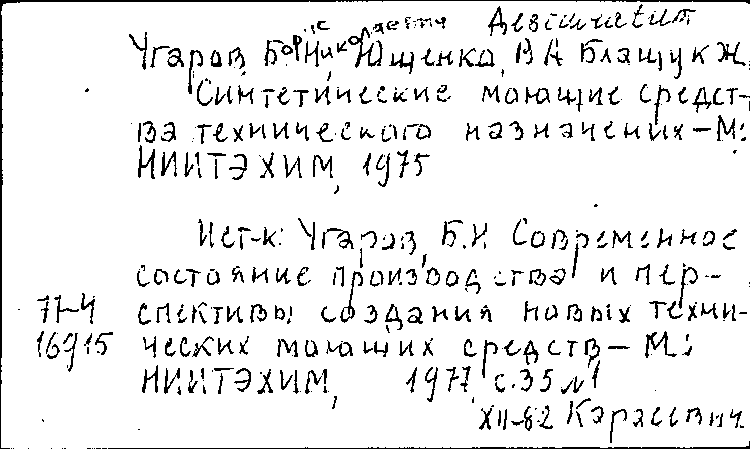 Угаров, Борис Николаевич, Ющенко, В А Блащук Ж,
Синтетические моющие средст-
ва технического назначения – М:
НИИТЭХИМ, 1975
Ист-к: Угаров, Б.Н Современное
состояние производства и пер-
спективы создания новых техни-
77-4
16915
ческих моющих средств – М:
НИИТЭХИМ, 1977, с.35 №1
XII-82 Карасевич